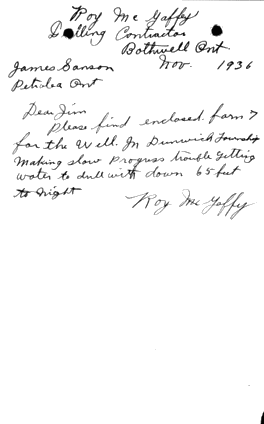 Roy Mc Gaffy
Drilling Contractor
Bothwell Ont
James Sanson Nov. 1936
Petrolea Ont
Dear Jim
Please find enclosed form 7
for the Well. In Dunwich Township
Making slow Progress trouble getting
water to drill with down 65 feet
to night
Roy Mc Gaffy